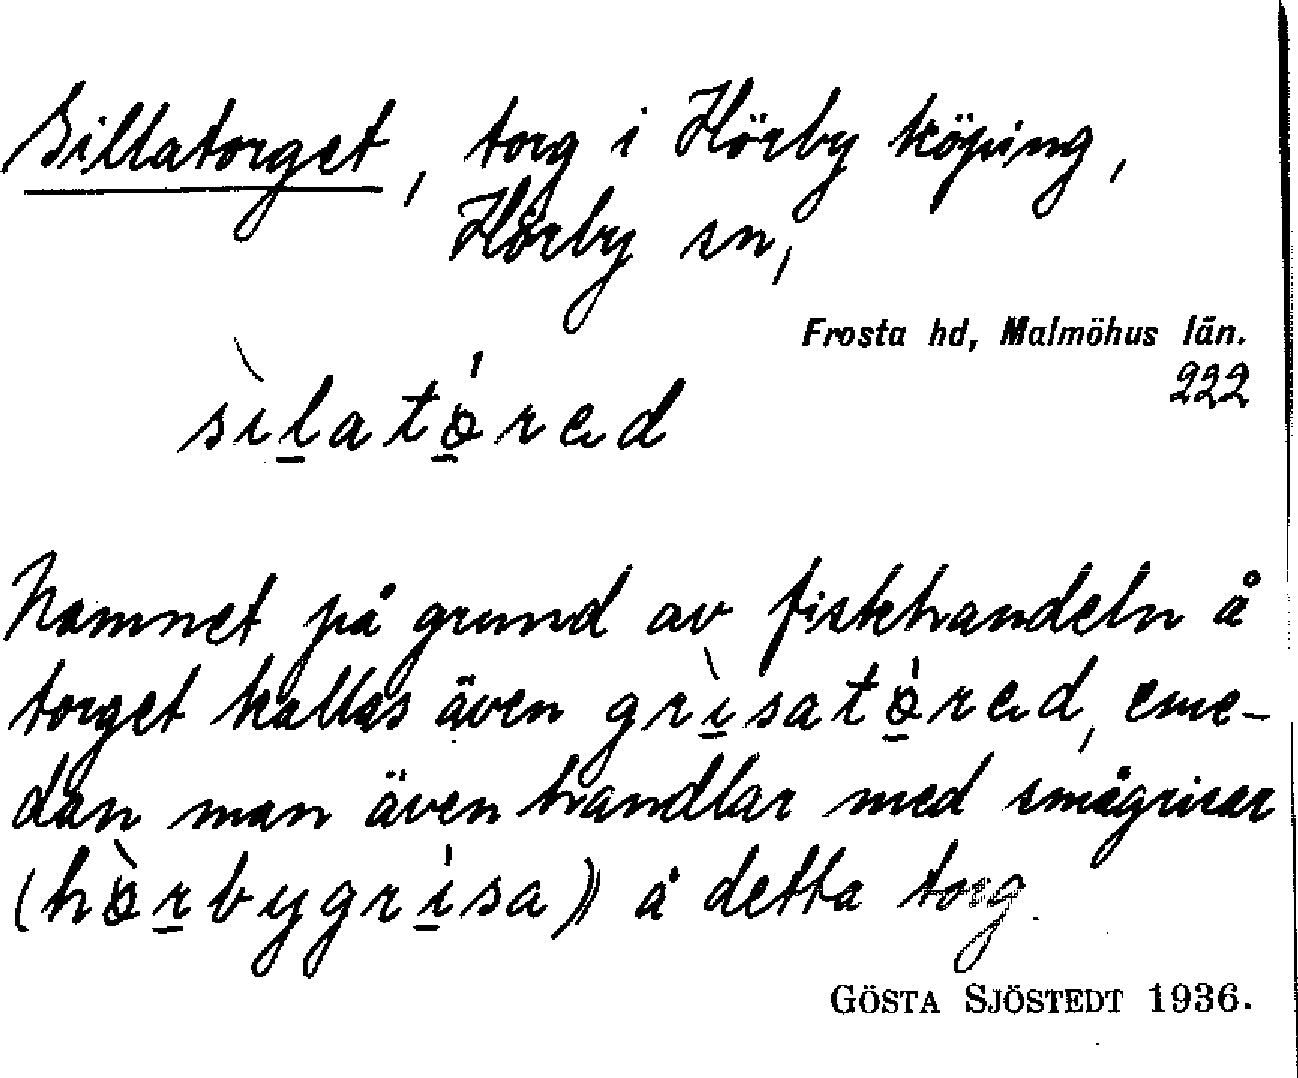 Sillatorget, torg i Hörby köping,
Hörby sn,
Frosta hd, Malmöhus län.
222
sìl̲atö̲́red
Namnet på grund av fiskhandeln å
torget kallas även grì̲satö̲́red, eme-
dan man även handlar med smågrisar
(hö̀r̲bygrí̲sa) å detta torg.
GÖSTA SJÖSTEDT 1936.